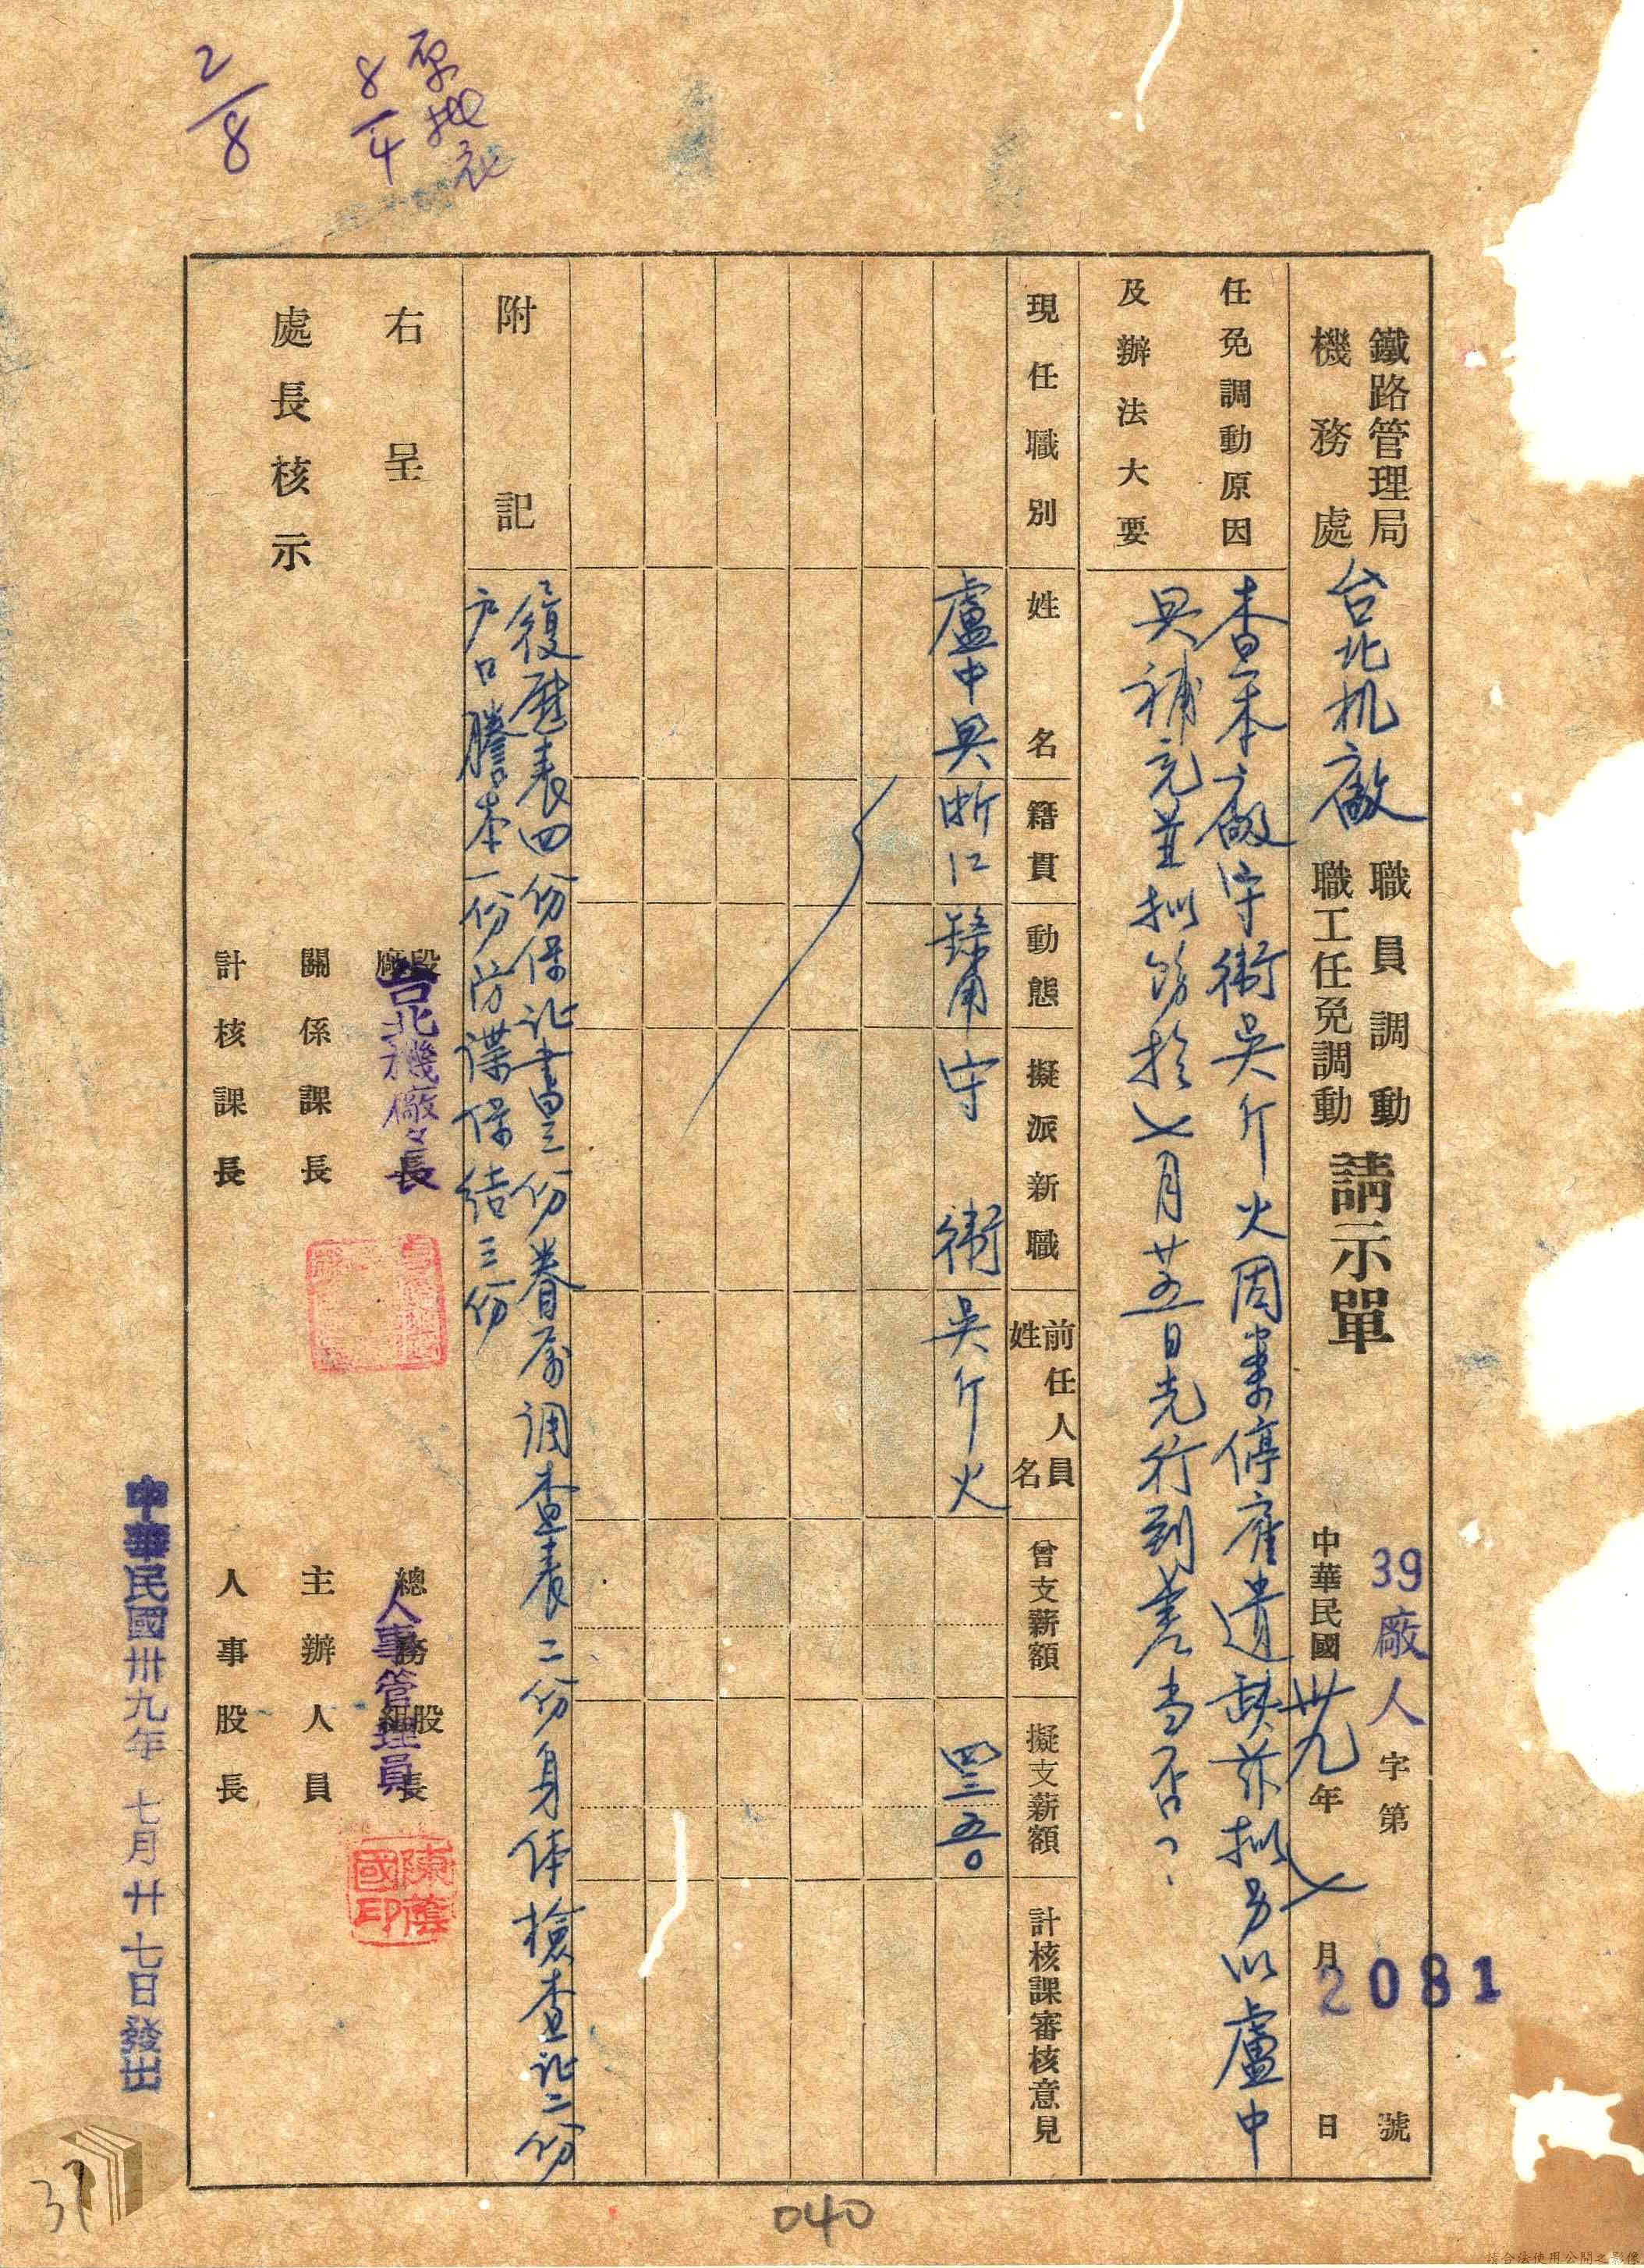 鐵路管理局
機務處
台北机廠
職員調動
職工任免調動
請示單
39廠人字第2081號
中華民國卅九年7月 日
任免調動原因
及辦法大要
查本廠守衛吳介火因案停雇遺缺茲擬另以盧中
興補充並擬飭於7月廿五日先行到差當否?
現任職別
姓名
籍貫
動態
擬派新職
前任人員
姓名
曾支薪額
擬支薪額
計核課審核意見
盧中興
浙江
守衛
吳介火
附記
復歷表四份保証書三份眷屬調查表二份身体檢查証二份
户口謄本一份防諜保結三份
右呈
處長核示
段
廠
台北機廠廠長
關係課長
計核課長
總務股長
人事管理員
主辦人員
人事股長
陳蔭國印
中華民國卅九年七月廿七日發出
2/8
8/4
040
37
請合法使用公開之影像